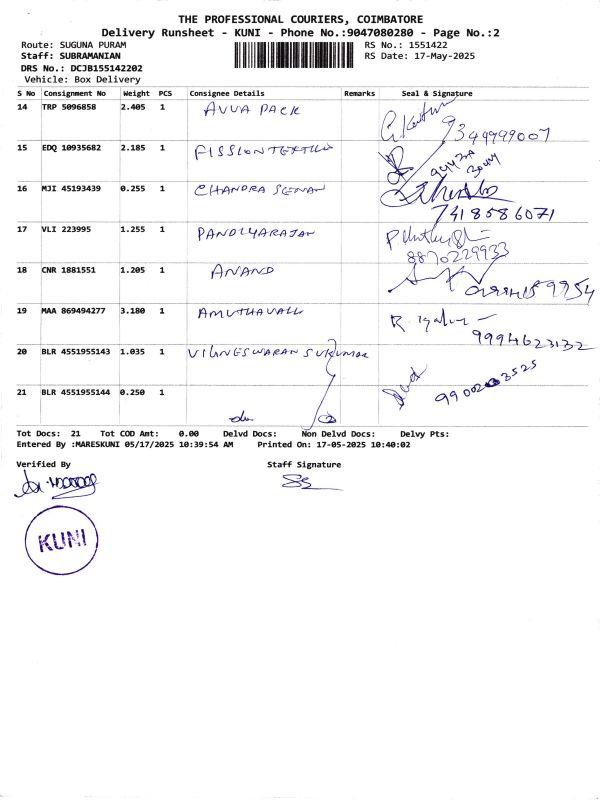 THE PROFESSIONAL COURIERS, COIMBATORE
Delivery Runsheet - KUNI - Phone No.:9047080280 - Page No.:2
Route: SUGUNA PURAM RS No.: 1551422
Staff: SUBRAMANIAN RS Date: 17-May-2025
DRS No.: DCJB155142202
Vehicle: Box Delivery
S No Consignment No Weight PCS Consignee Details Remarks Seal & Signature
14 TRP 5096858 2.405 1 AVVA PACK
9344999007
15 EDQ 10935682 2.185 1 FISSION TEXTILES
16 MJI 45193439 0.255 1 CHANDRA SENAN
7418586071
17 VLI 223995 1.255 1 PANDIYARAJAN
8870229933
18 CNR 1881551 1.205 1 ANAND
19 MAA 869494277 3.180 1 AMUTHAVALLI
9994623132
20 BLR 4551955143 1.035 1 VIGNESWARAN SUKUMAR
21 BLR 4551955144 0.250 1
Tot Docs: 21 Tot COD Amt: 0.00 Delvd Docs: Non Delvd Docs: Delvy Pts:
Entered By :MARESKUNI 05/17/2025 10:39:54 AM Printed On: 17-05-2025 10:40:02
Verified By Staff Signature
KUNI